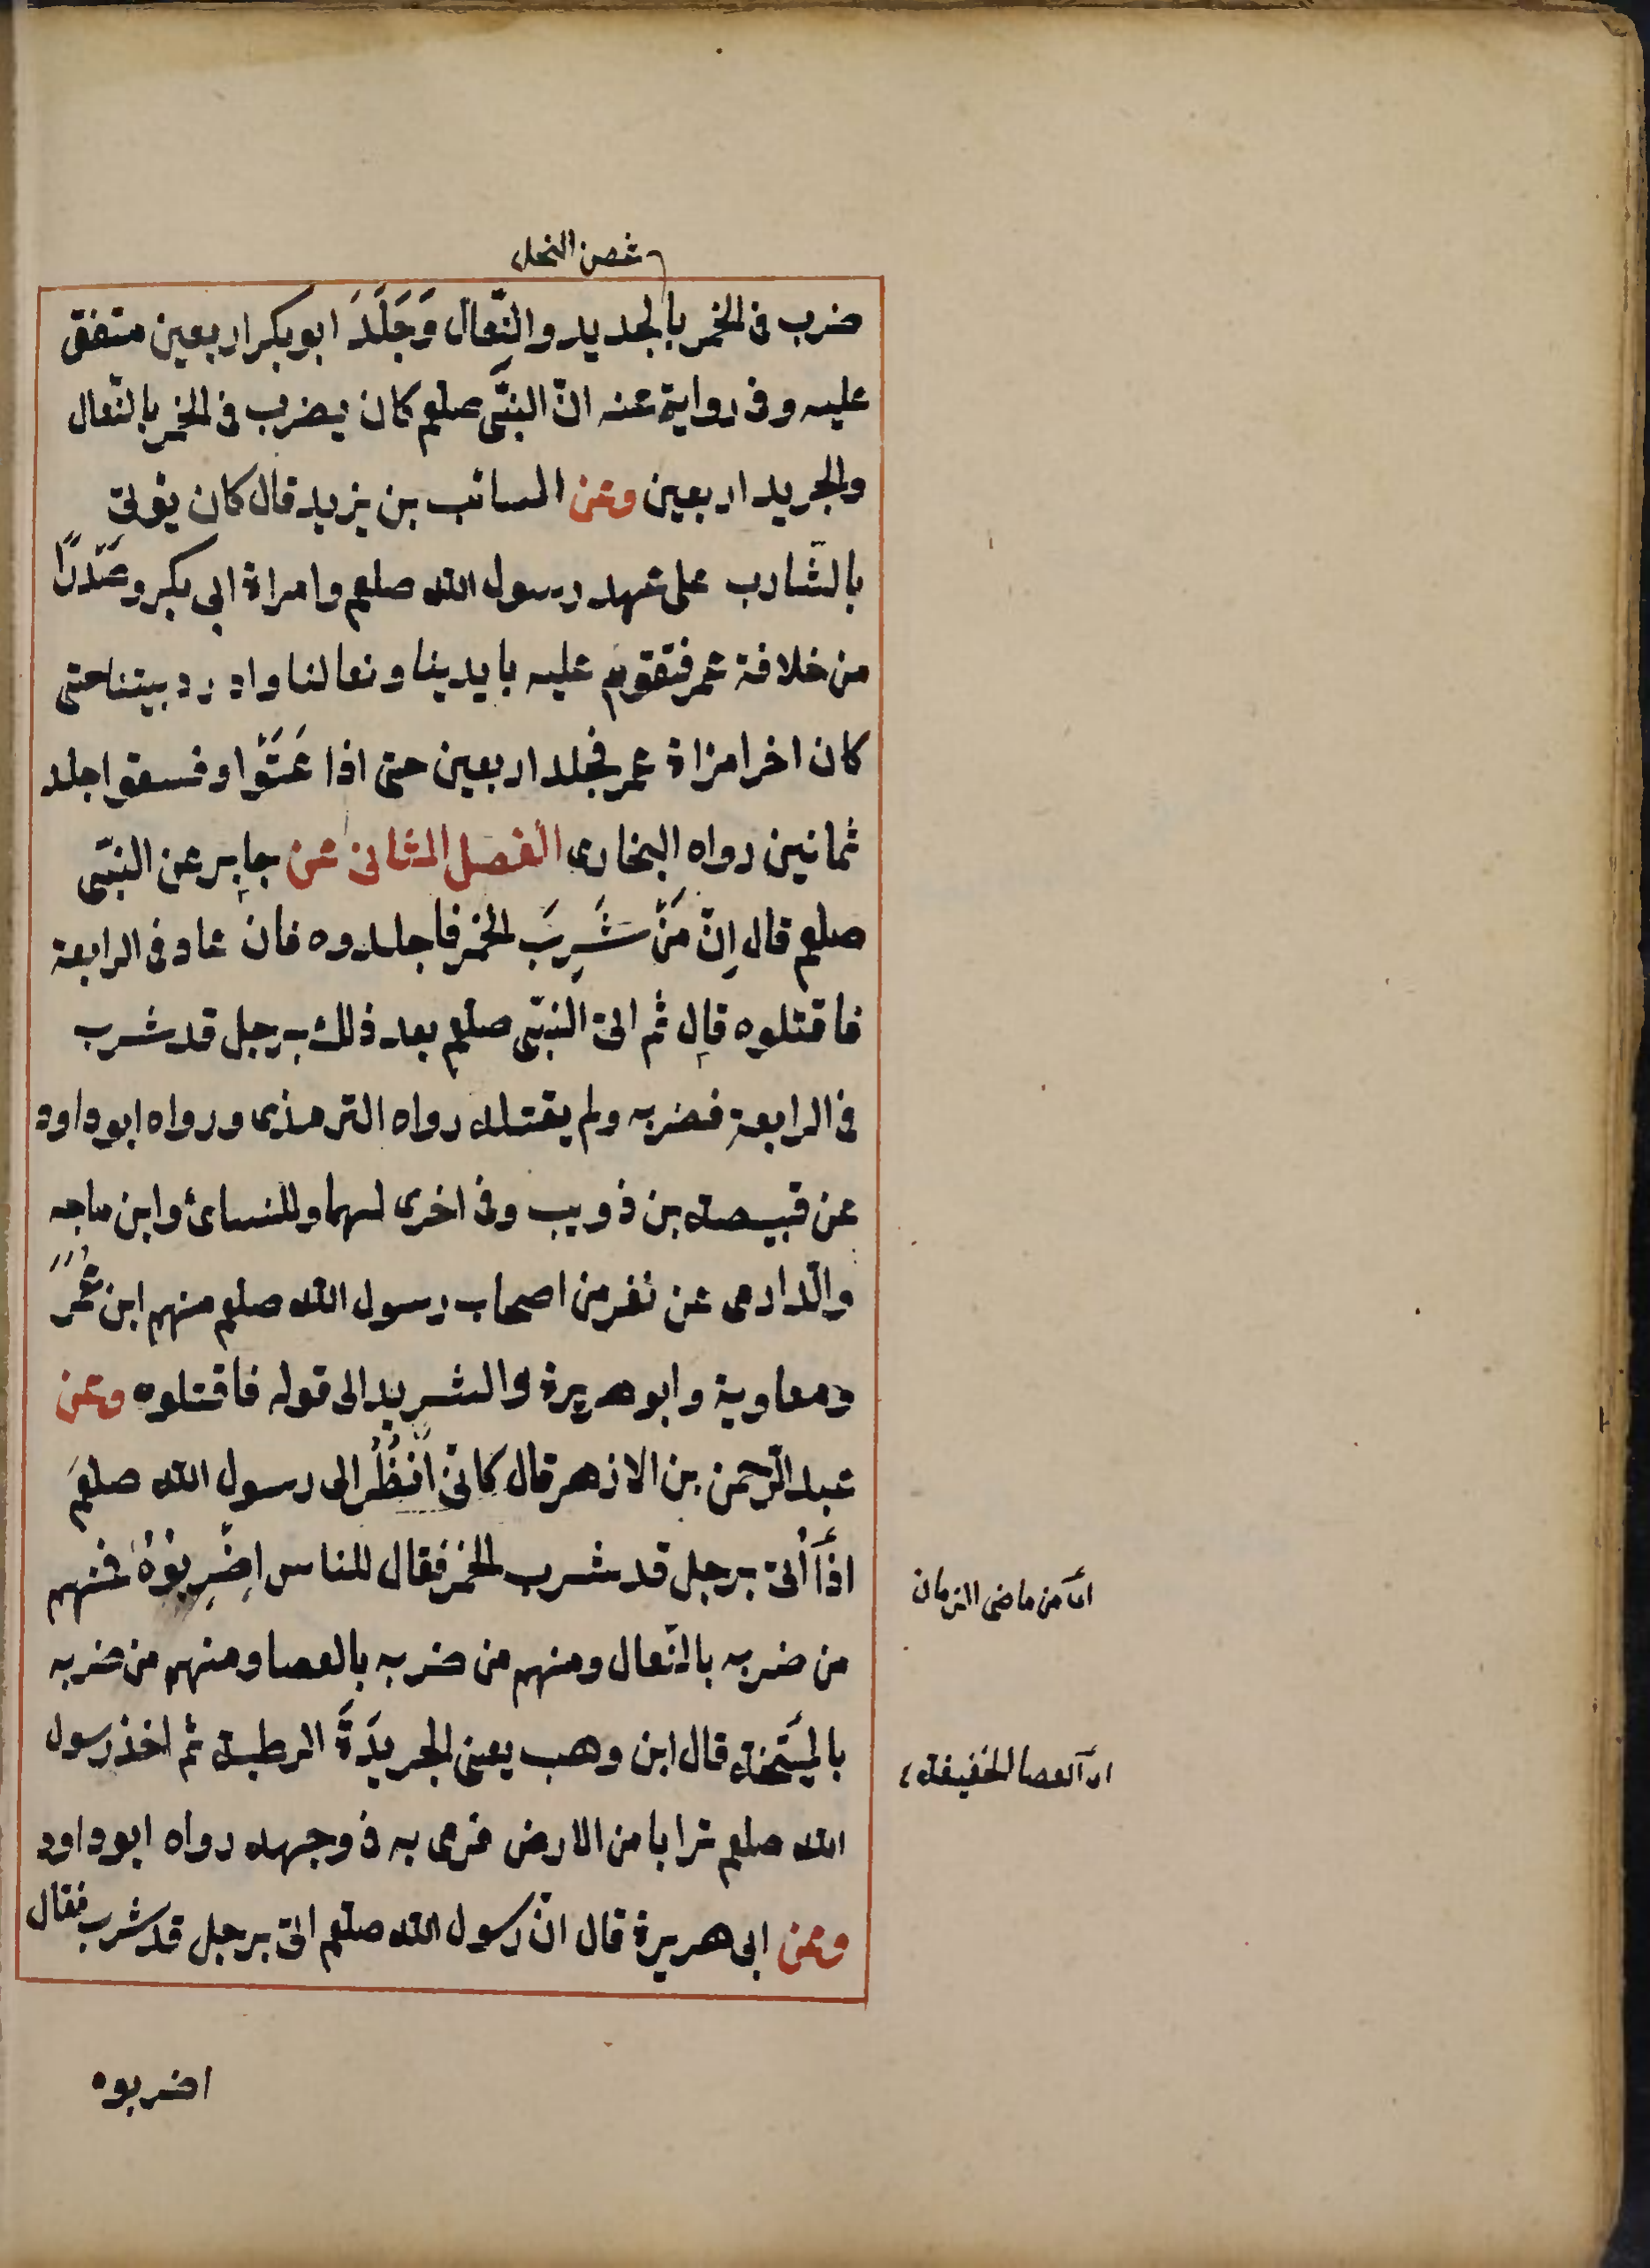 غصن النخل
ضرب فى الخمر بالجديد والنِّعال وَجَلَدَ ابو بكر اربعين متفق
عليه وفى رواية عنه انّ النبّى صلعم كان يضرب فى الخمر بالنّعال
والجريد اربعين وعن السائب بن يزيد قال كان يؤتى
بالشّارب على عهد رسول الله صلعم وامراة ابى بكر وصَدْرًا
من خلافة عمر فتقوم عليه بايدينا ونعالنا واردبيتنا حتى
كان اخر امراة عمر فجلد اربعين حتى اذا عَتَوْا وفسقوا جلد
ثمانين رواه البخارى الفصل الثانى عن جابر عن النبّى
صلعم قال اِنّ مَنْ شَرِبَ الخمر فاجلدوه فان عاد فى الرابعة
فاقتلوه قال ثم اتى النبّى صلعم بعد ذلك برجل قد شرب
فى الرابعة فضربه ولم يقتله رواه الترمذى ورواه ابو داود
عن قبيصة بن ذويب وفى اخرى لهما وللنسائ وابن ماجه
والّدارمى عن نفر من اصحاب رسول الله صلعم منهم ابن عُمَرَ
ومعاوية وابو هريرة والشريد الى قوله فاقتلوه وعن
عبد الرّحمن بن الازهر قال كانّى اَنْظُرُ الى رسول الله صلعم
اذْ اُتى برجل قد شرب الخمر فقال للناس اِضْرِبُوْهُ فمنهم
من ضربه بالنّعال ومنهم من ضربه بالعصا ومنهم من ضربه
بالمِيتَخة قال ابن وهب يعنى الجريدَةَ الرطبة ثم اخذ رسول
الله صلعم ترابا من الارض فرمى به فى وجهه رواه ابو داود
وعن ابى هريرة قال انّ رسول الله صلعم اتى برجل قد شرب فقال
اى من ماضى الزمان
اى العصا الخفيفة
اضربوه